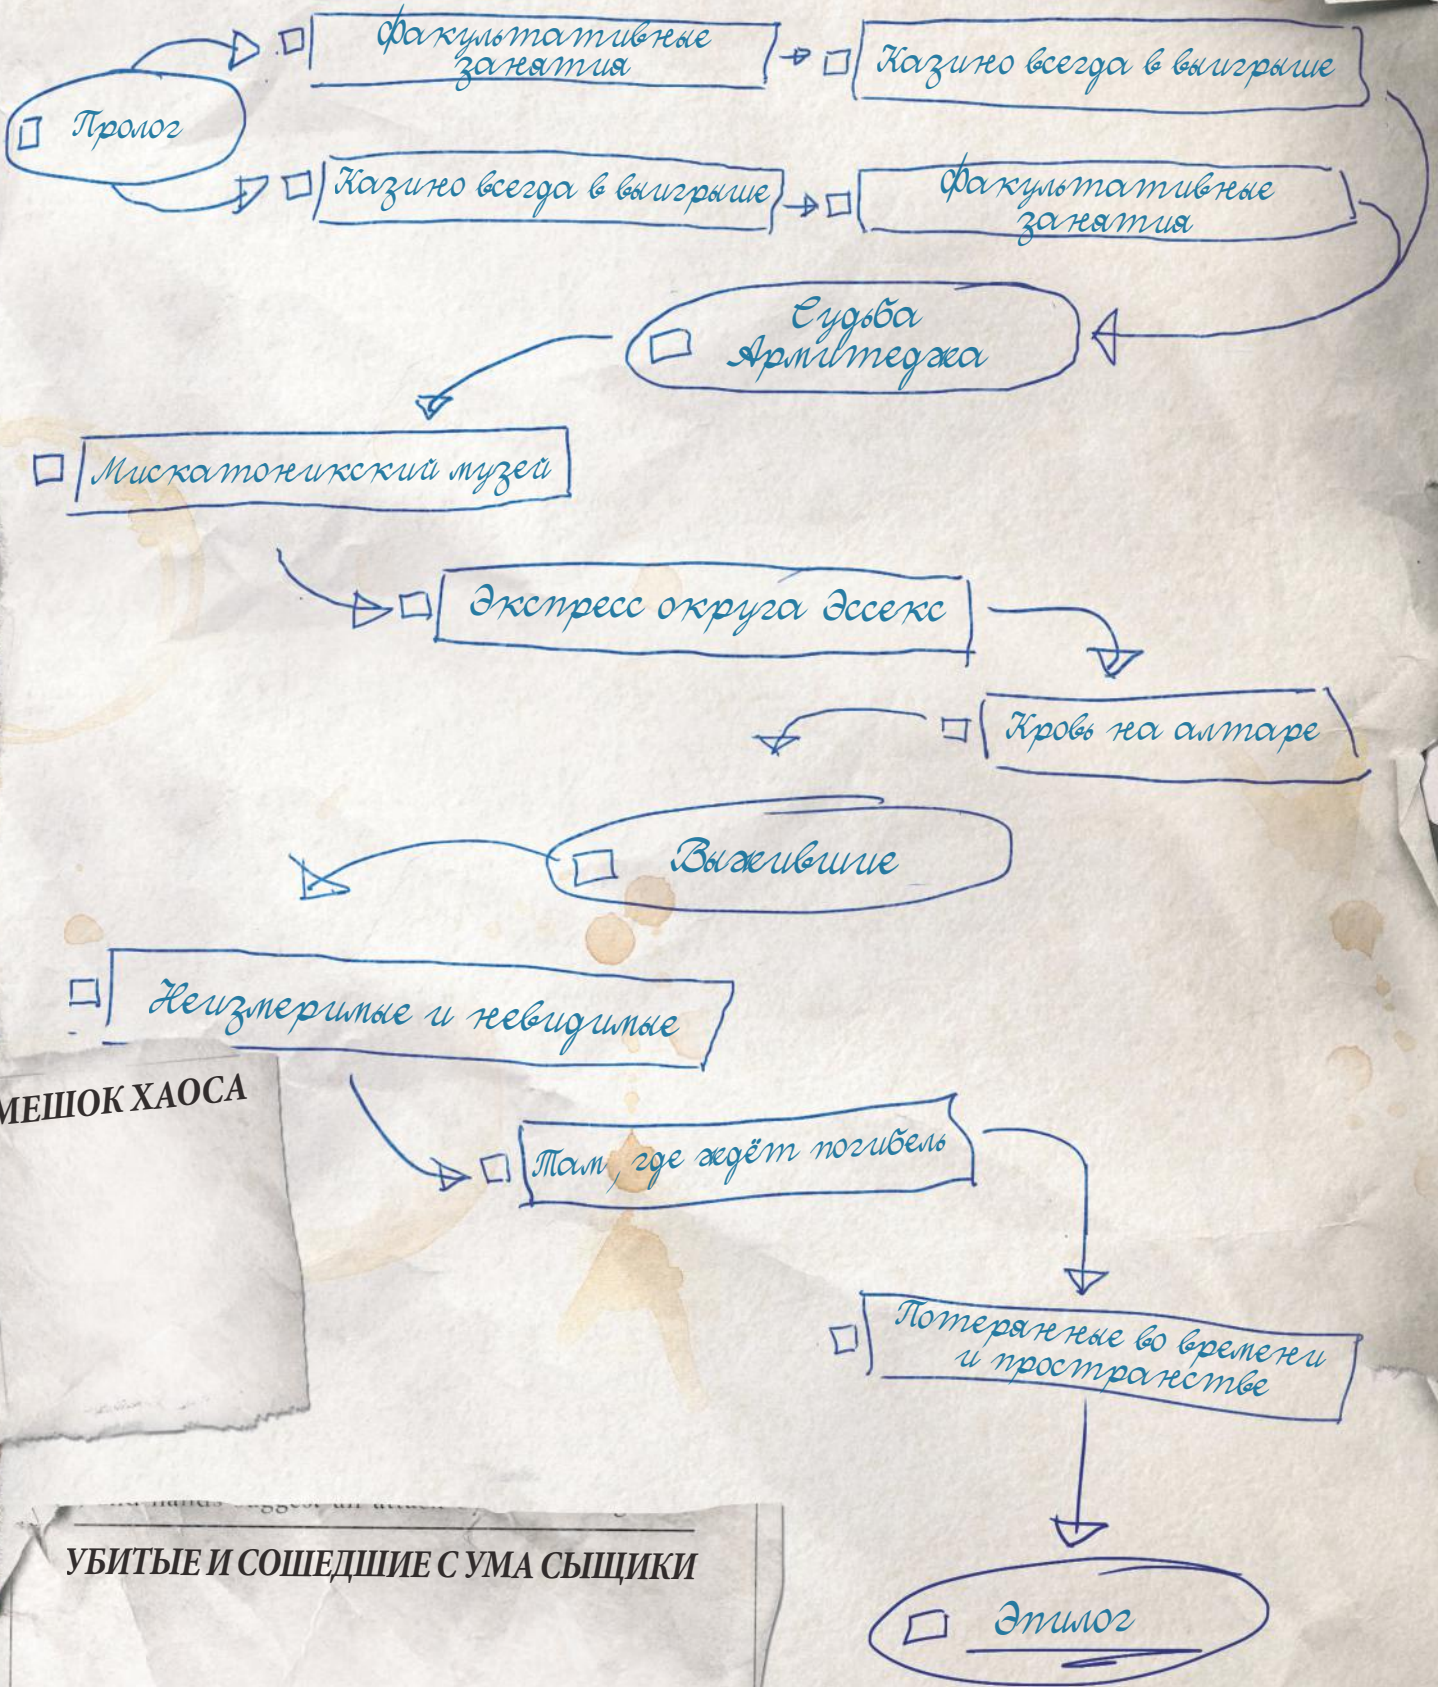 Факультативные
занятия
Казино всегда в выигрыше
Пролог
Казино всегда в выигрыше
Факультативные
занятия
Судьба
Армитеджа
Мискатоникский музей
Экспресс округа Эссекс
Кровь на алтаре
Выжившие
Неизмеримые и невидимые
МЕШОК ХАОСА
Там, где ждёт погибель
Потерянные во времени
и пространстве
УБИТЫЕ И СОШЕДШИЕ С УМА СЫЩИКИ
Эпилог